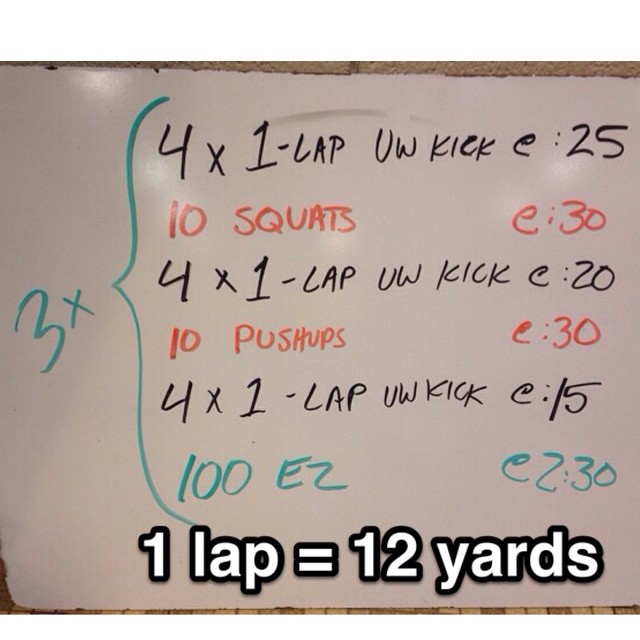 3x
4 x 1-LAP UW KICK @ :25
10 SQUATS @:30
4 x 1-LAP UW KICK @ :20
10 PUSHUPS @:30
4 x 1-LAP UW KICK @:15
100 EZ @2:30
1 lap = 12 yards